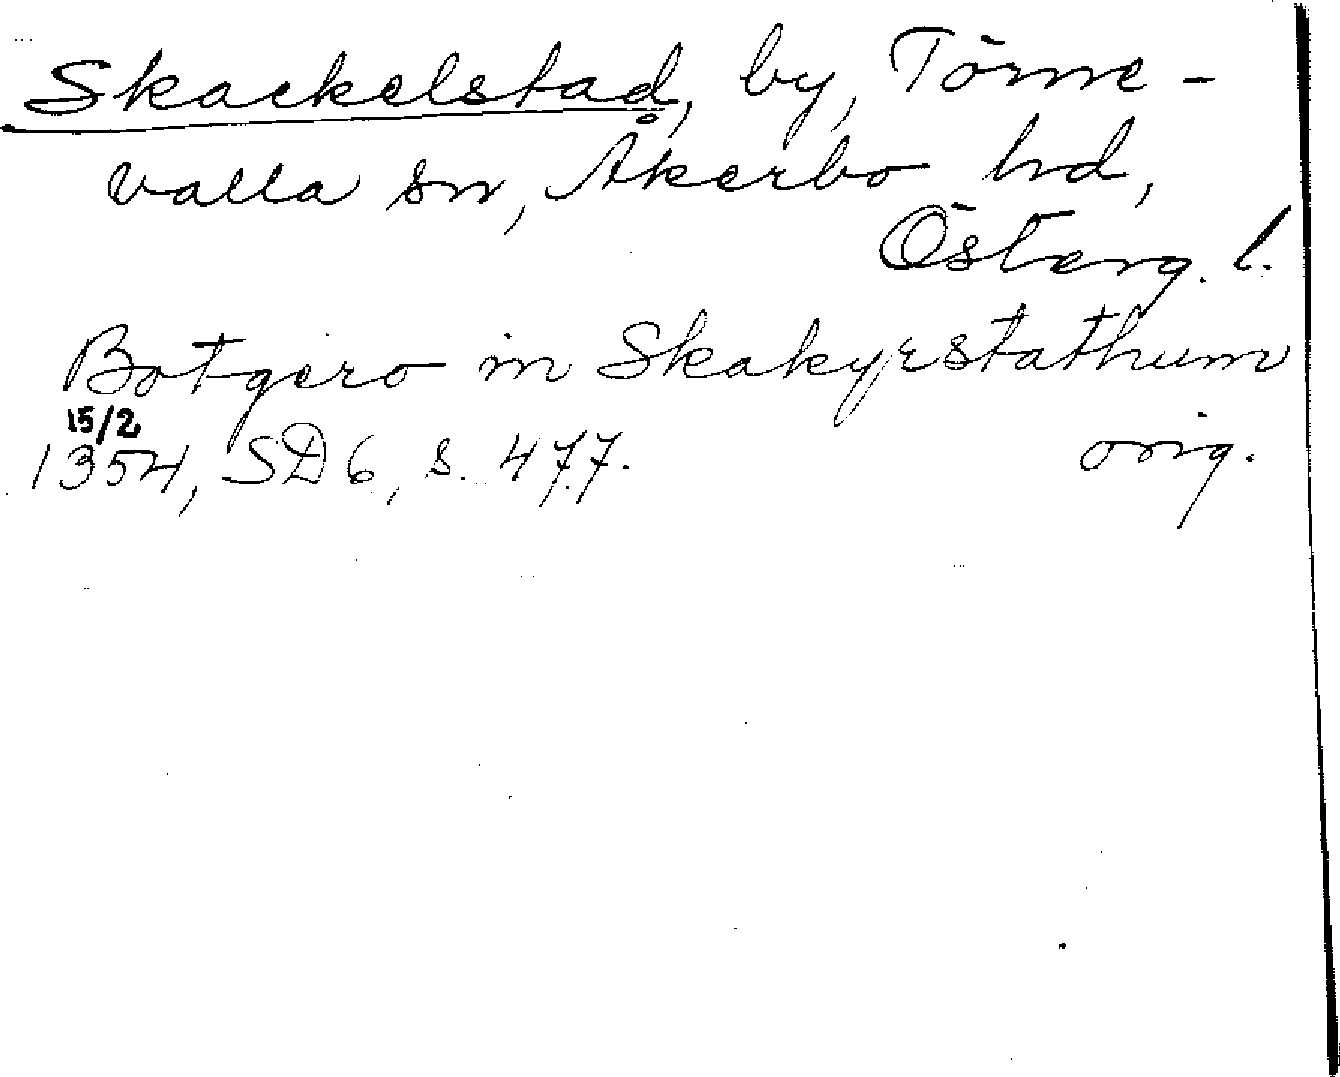 Skackelstad, by, Törne-
valla sn, Åkerbo hd,
Österg. l.
Botgero in Skakyrstathum
15/2
1354, SD 6, s. 477. orig.